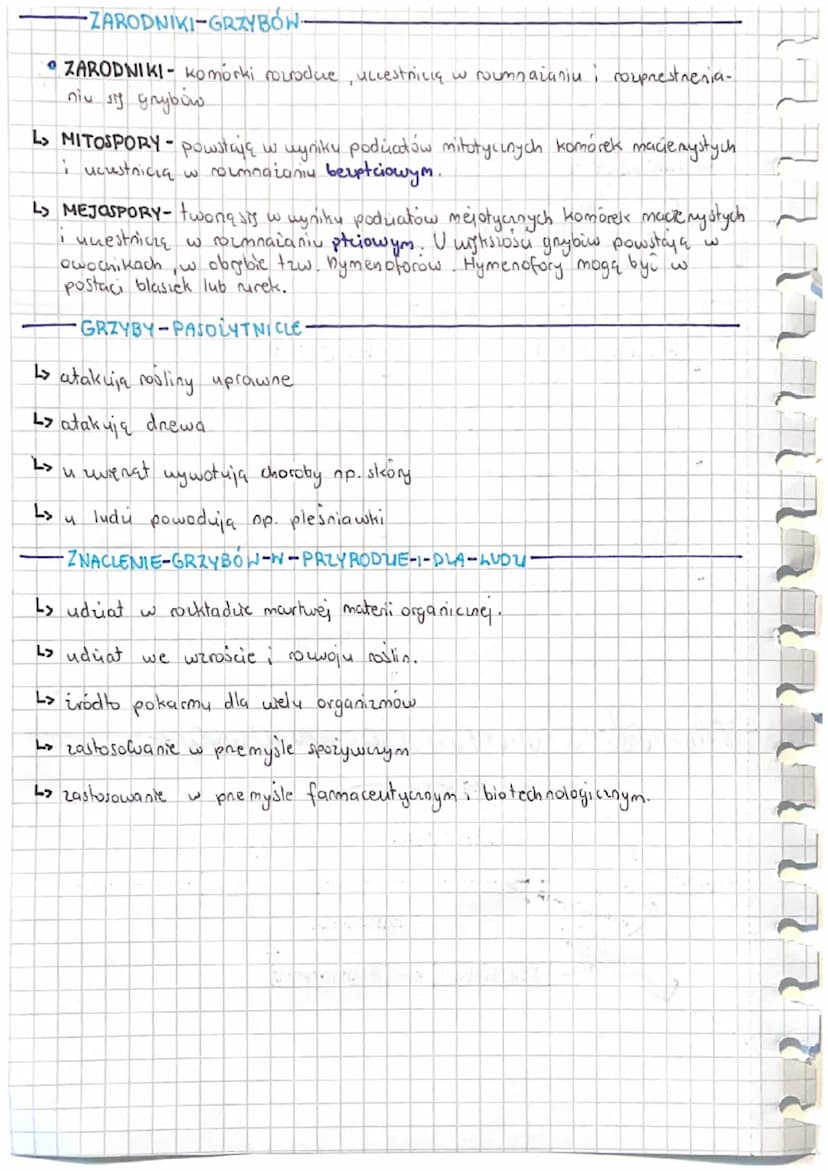 ZARODNIKI-GRZYBÓW
• ZARODNIKI - komórki rozrodcze, uczestniczą w rozmnażaniu i rozprzestrzenia-
niu się grzybów
↳ MITOSPORY - powstają w wyniku podziałów mitotycznych komórek macierzystych
i uczestniczą w rozmnażaniu bezpłciowym.
↳ MEJOSPORY - tworzą się w wyniku podziałów mejotycznych komórek macierzystych
i uczestniczą w rozmnażaniu płciowym. U większości grzybów powstają w
owocnikach, w obrębie tzw. hymenoforów. Hymenofory mogą być w
postaci blaszek lub rurek.
GRZYBY-PASOŻYTNICZE
↳ atakują rośliny uprawne
↳ atakują drzewa
↳ u zwierząt wywołują choroby np. skóry
↳ u ludzi powodują np. pleśniawki
ZNACZENIE-GRZYBÓW-W-PRZYRODZIE-I-DLA-LUDZI
↳ udział w rozkładzie martwej materii organicznej.
↳ udział we wzroście i rozwoju roślin.
↳ źródło pokarmu dla wielu organizmów
↳ zastosowanie w przemyśle spożywczym
↳ zastosowanie w przemyśle farmaceutycznym i biotechnologicznym.